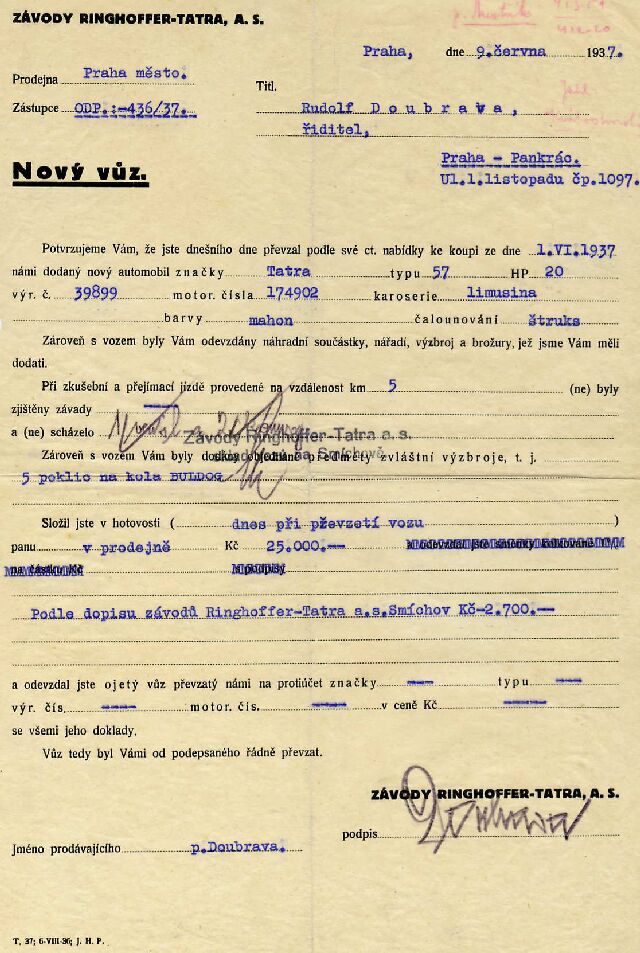 ZÁVODY RINGHOFFER-TATRA, A. S.
Praha, dne 9.června 1937.
Prodejna Praha město.
Titl.
Zástupce ODP.:-436/37.
Rudolf Doubrava,
řiditel,
Praha - Pankrác.
Ul.1.listopadu čp.1097.
Nový vůz.
Potvrzujeme Vám, že jste dnešního dne převzal podle své ct. nabídky ke koupi ze dne 1.VI.1937
námi dodaný nový automobil značky Tatra typu 57 HP 20
výr. č. 39899 motor. čísla 174902 karoserie limusina
barvy mahon čalounování štruks
Zároveň s vozem byly Vám odevzdány náhradní součástky, nářadí, výzbroj a brožury, jež jsme Vám měli
dodati.
Při zkušební a přejímací jízdě provedené na vzdálenost km 5 (ne) byly
zjištěny závady
a (ne) scházelo
Závody Ringhoffer-Tatra a. s.
Zároveň s vozem Vám byly dodány předměty zvláštní výzbroje, t. j.
na Smíchově
5 poklic na kola BULDOG
Složil jste v hotovosti ( dnes při převzetí vozu )
panu v prodejně Kč 25.000.--
na částku Kč
Podle dopisu závodů Ringhoffer-Tatra a.s.Smíchov Kč-2.700.--
a odevzdal jste ojetý vůz převzatý námi na protiúčet značky --- typu ---
výr. čís. --- motor. čís. --- v ceně Kč ---
se všemi jeho doklady.
Vůz tedy byl Vámi od podepsaného řádně převzat.
ZÁVODY RINGHOFFER-TATRA, A. S.
podpis Doubrava
Jméno prodávajícího p.Doubrava.
T. 37; 6-VIII-36; J. H. P.